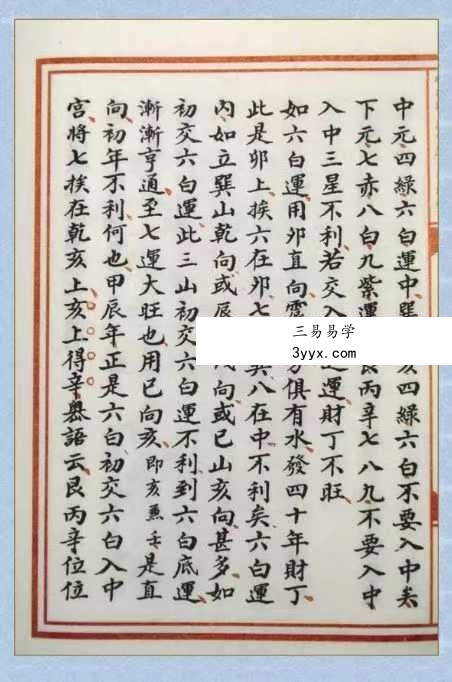 中元四綠六白運中巽亥四綠六白不要入中矣
下元七赤八白九紫運艮丙辛七八九不要入中
入中三星不利若交入運財丁不旺
如六白運用夘直向俱有水發四十年財丁
此是夘上挨六在夘七巽八在中不利矣六白運
內如立巽山乾向或辰向或巳山亥向甚多如
初交六白運此三山初交六白運不利到六白底運
漸漸亨通至七運大旺也用巳向亥即亥兼壬是直
向初年不利何也甲辰年正是六白初交六白入中
宮將七挨在乾亥上亥上得辛奧語云艮丙辛位位
三易易学
3yyx.com